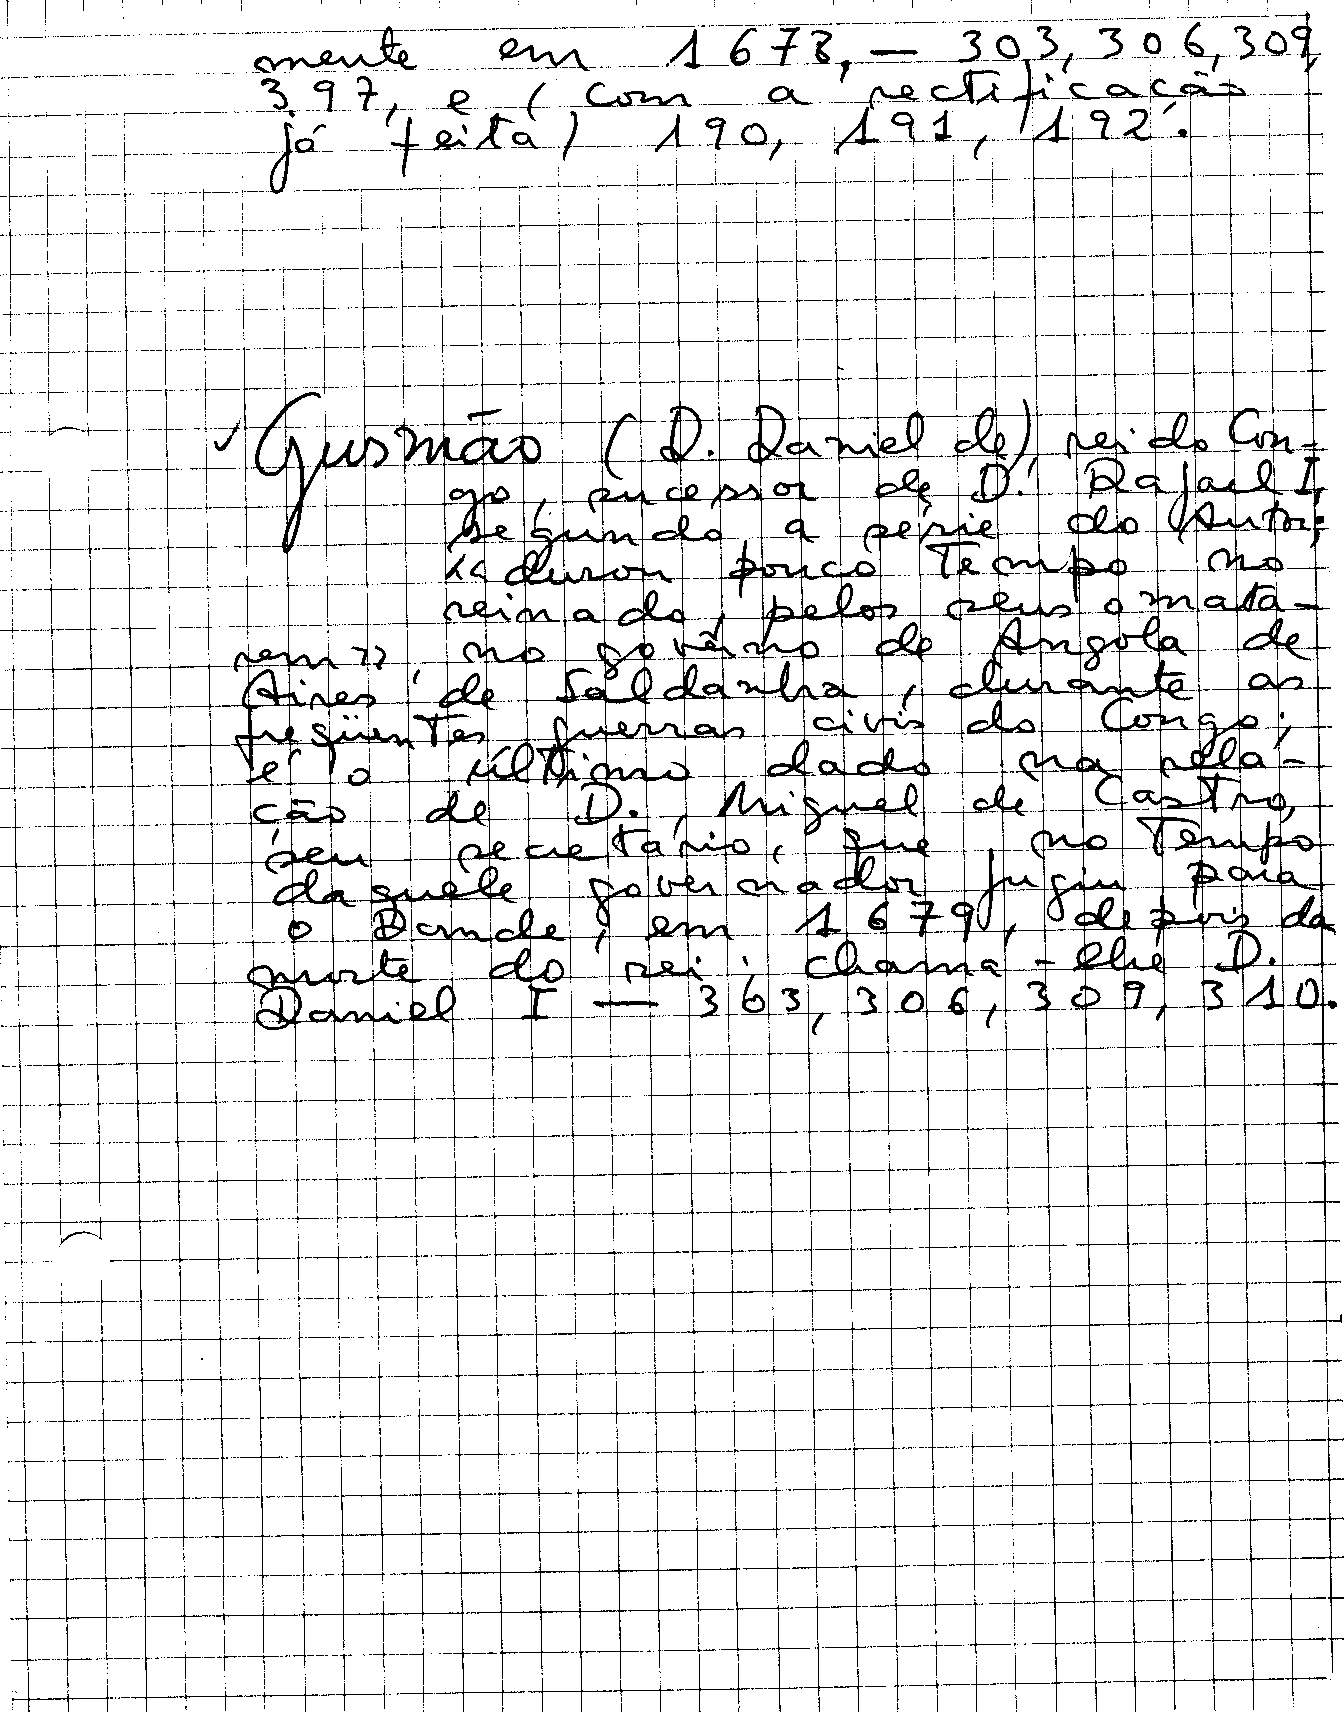 mente em 1673, — 303, 306, 309,
397, e (com a rectificação
já feita) 190, 191, 192.
✓ Gusmão (D. Daniel de), rei do Con-
go, sucessor de D. Rafael I,
segundo a série do Autor;
«durou pouco tempo no
reinado, pelos seus o mata-
rem», no govêrno de Angola de
Aires de Saldanha, durante as
freqüentes guerras civis do Congo;
é o último dado na rela-
ção de D. Miguel de Castro,
seu secretário, que no tempo
daquele governador fugiu para
o Dande, em 1679, depois da
morte do rei; chama-lhe D.
Daniel I — 303, 306, 309, 310.